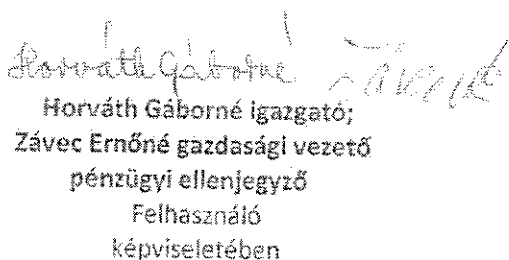 Horváth Gáborné
Horváth Gáborné igazgató;
Závec Ernőné gazdasági vezető
pénzügyi ellenjegyző
Felhasználó
képviseletében